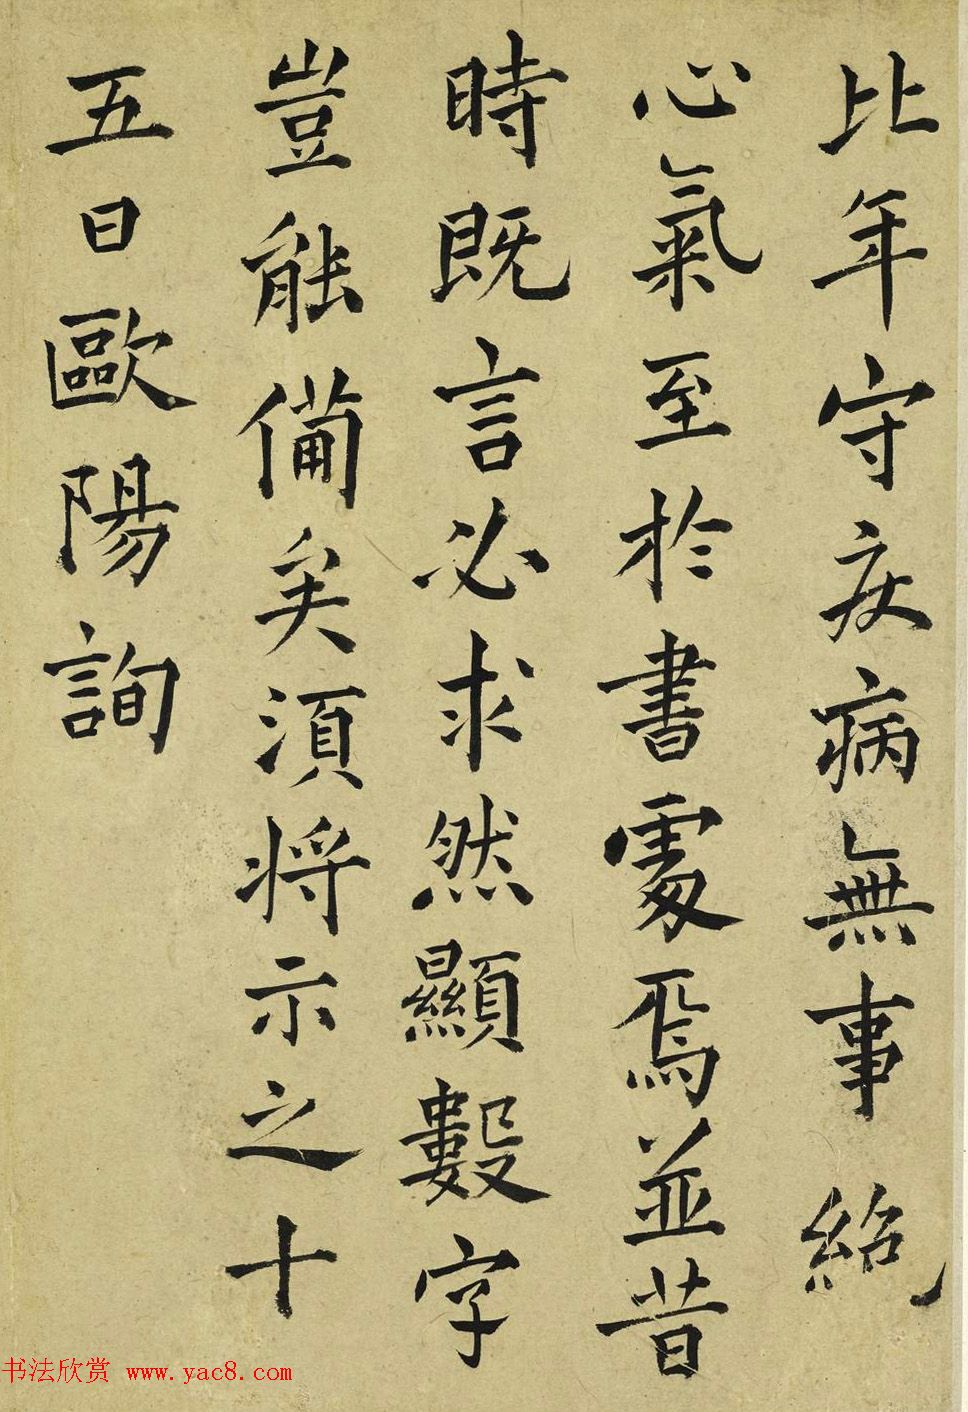 比年守疾病無事絕
心氣至於書處焉並昔
時既言必求然顯數字
豈能備矣須將示之十
五日歐陽詢
书法欣赏 www.yac8.com